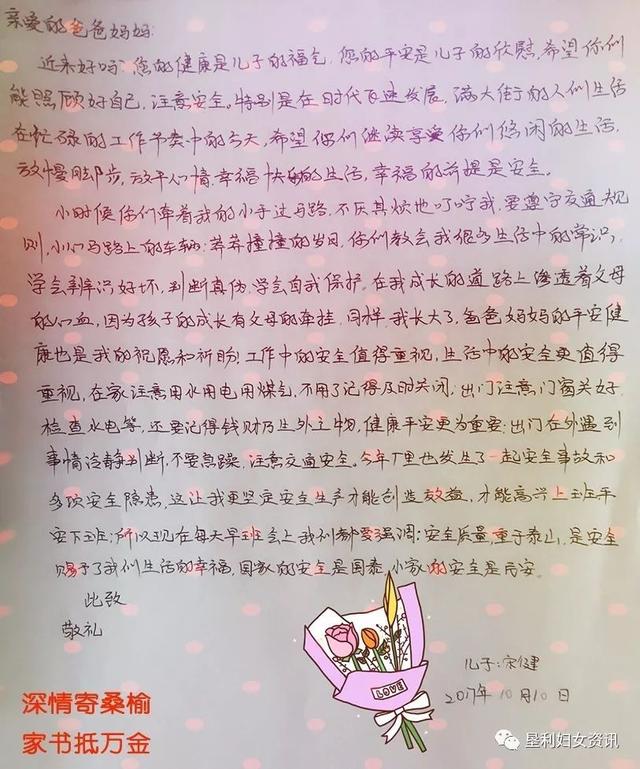 亲爱的爸爸妈妈:
近来好吗?您的健康是儿子的福气,您的平安是儿子的欣慰,希望你们
能照顾好自己,注意安全。特别是在时代飞速发展,满大街的人们生活
在忙碌的工作节奏中的今天,希望你们继续享受你们悠闲的生活,
放慢脚步,放平心情,幸福快乐的生活,幸福的前提是安全。
小时候你们牵着我的小手过马路,不厌其烦地叮咛我,要遵守交通规
则,小心马路上的车辆;莽莽撞撞的岁月,你们教会我很多生活中的常识,
学会辨识好坏,判断真伪,学会自我保护。在我成长的道路上渗透着父母
的心血,因为孩子的成长有父母的牵挂,同样,我长大了,爸爸妈妈的平安健
康也是我的祝愿和祈盼,工作中的安全值得重视,生活中的安全更值得
重视,在家注意用水用电用煤气,不用了记得及时关闭;出门注意门窗关好,
检查水电等,还要记得钱财乃生外之物,健康平安更为重要;出门在外遇到
事情冷静判断,不要急躁,注意交通安全。今年厂里也发生了一起安全事故和
多次安全隐患,这让我更坚定安全生产才能创造效益,才能高兴上班平
安下班;所以现在每天早班会上我们都要强调:安全质量,重于泰山,是安全
赐予了我们生活的幸福,国家的安全是国泰,小家的安全是民安。
此致
敬礼
儿子:宋健
2017年10月10日
LOVE
深情寄桑榆
家书抵万金
垦利妇女资讯